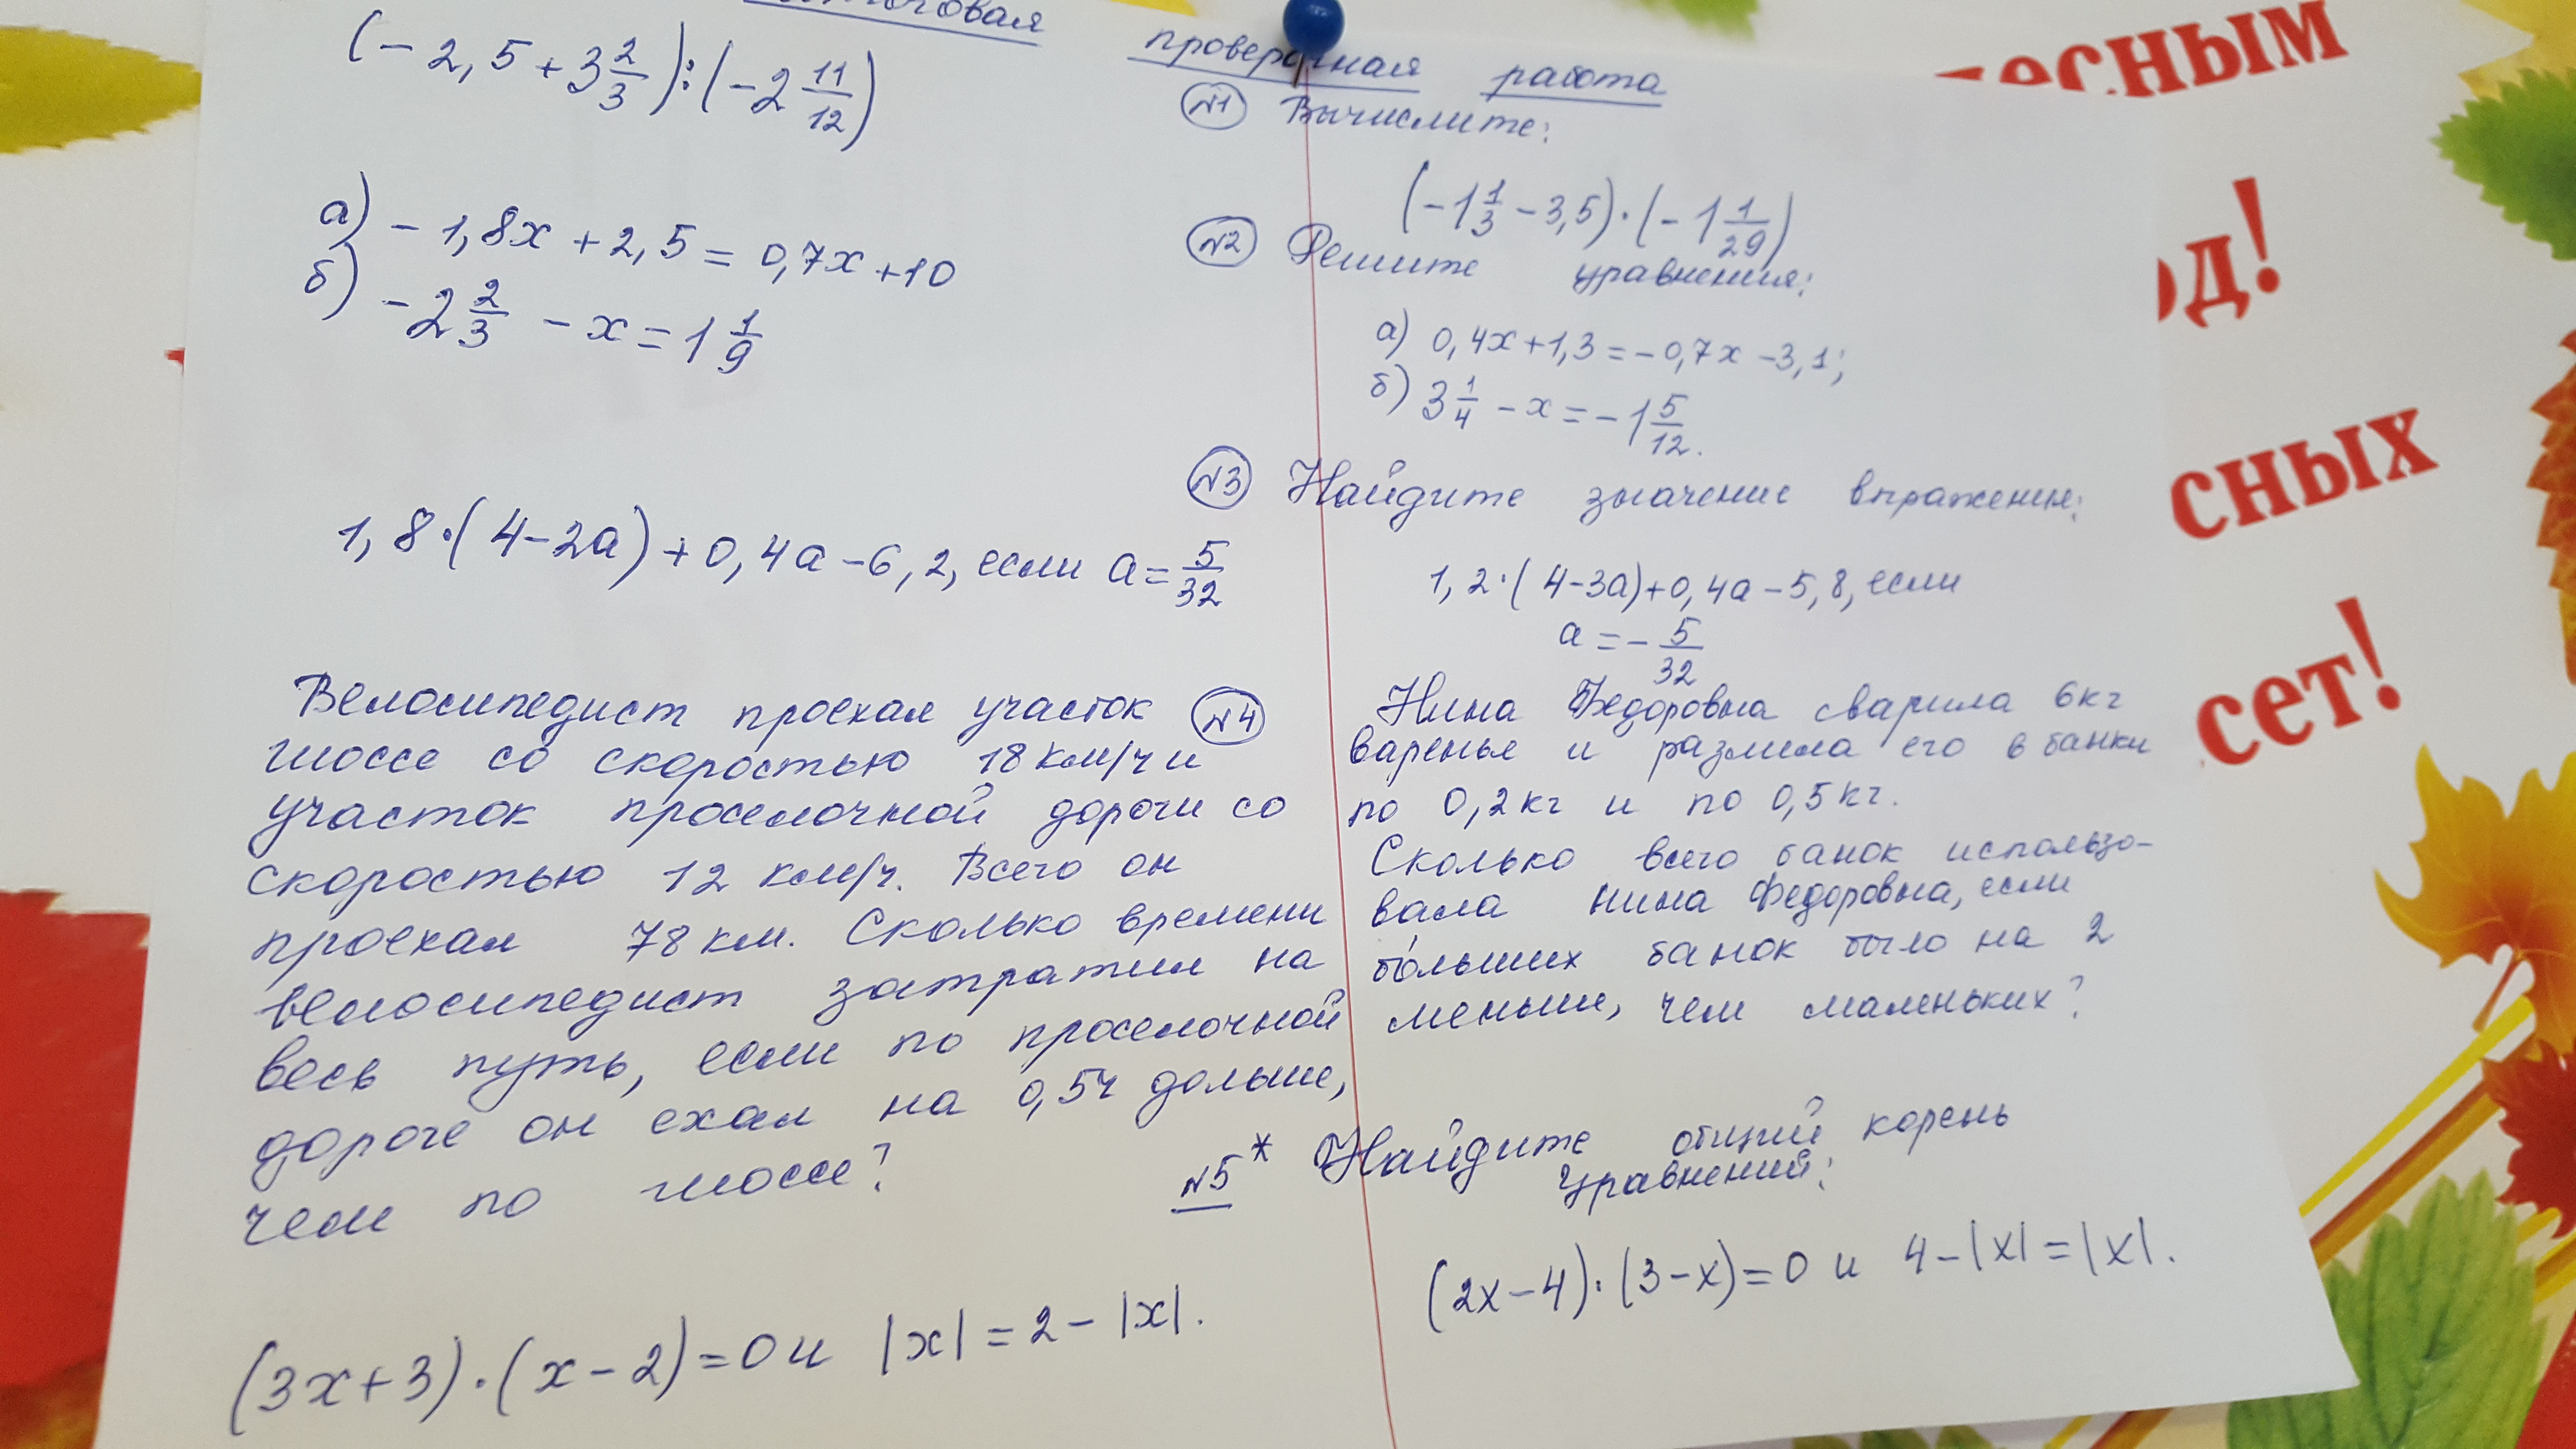 проверочная работа
(- 2,5 + 3 2/3) : (- 2 11/12)
а) - 1,8x + 2,5 = 0,7x + 10
б) - 2 2/3 - x = 1 1/9
1,8 · (4 - 2a) + 0,4a - 6,2, если a = 5/32
Велосипедист проехал участок
шоссе со скоростью 18 км/ч и
участок проселочной дороги со
скоростью 12 км/ч. Всего он
проехал 78 км. Сколько времени
велосипедист затратил на
весь путь, если по проселочной
дороге он ехал на 0,5ч дольше,
чем по шоссе?
(3x + 3) · (x - 2) = 0 и |x| = 2 - |x|.
N1 Вычислите:
(- 1 1/3 - 3,5) · (- 1 1/29)
N2 Решите уравнения:
а) 0,4x + 1,3 = - 0,7x - 3,1;
б) 3 1/4 - x = - 1 5/12.
N3 Найдите значение выражения:
1,2 · (4 - 3a) + 0,4a - 5,8, если
a = - 5/32
N4 Нина Федоровна сварила 6кг
варенья и разлила его в банки
по 0,2кг и по 0,5кг.
Сколько всего банок использо-
вала Нина Федоровна, если
бо́льших банок было на 2
меньше, чем маленьких?
N5* Найдите общий корень
уравнений:
(2x - 4) · (3 - x) = 0 и 4 - |x| = |x|.
есным
од!
сных
сет!